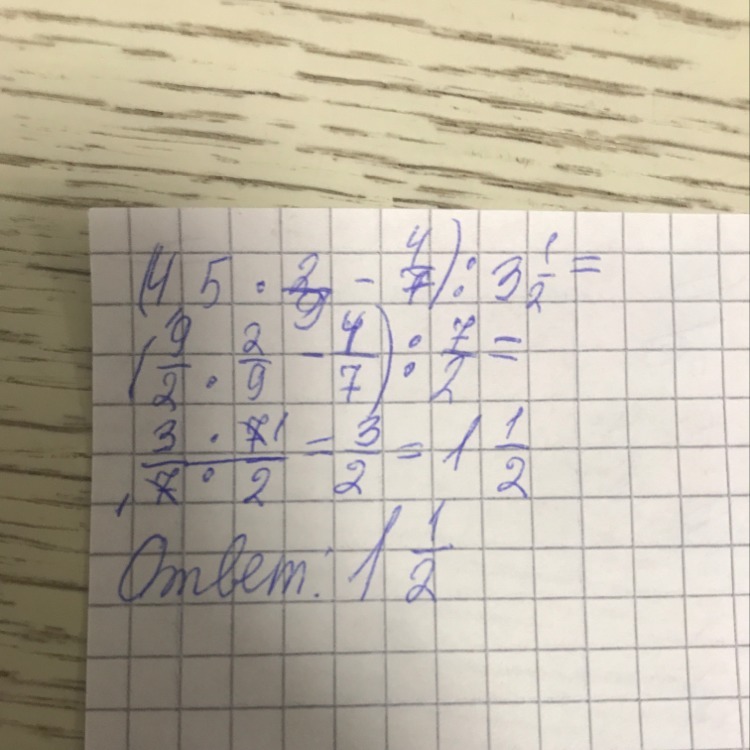 (4 5 · 2/9 - 4/7) : 3 1/2 =
(9/2 · 2/9 - 4/7) : 7/2 =
3/7 · 7/2 = 3/2 = 1 1/2
Ответ: 1 1/2